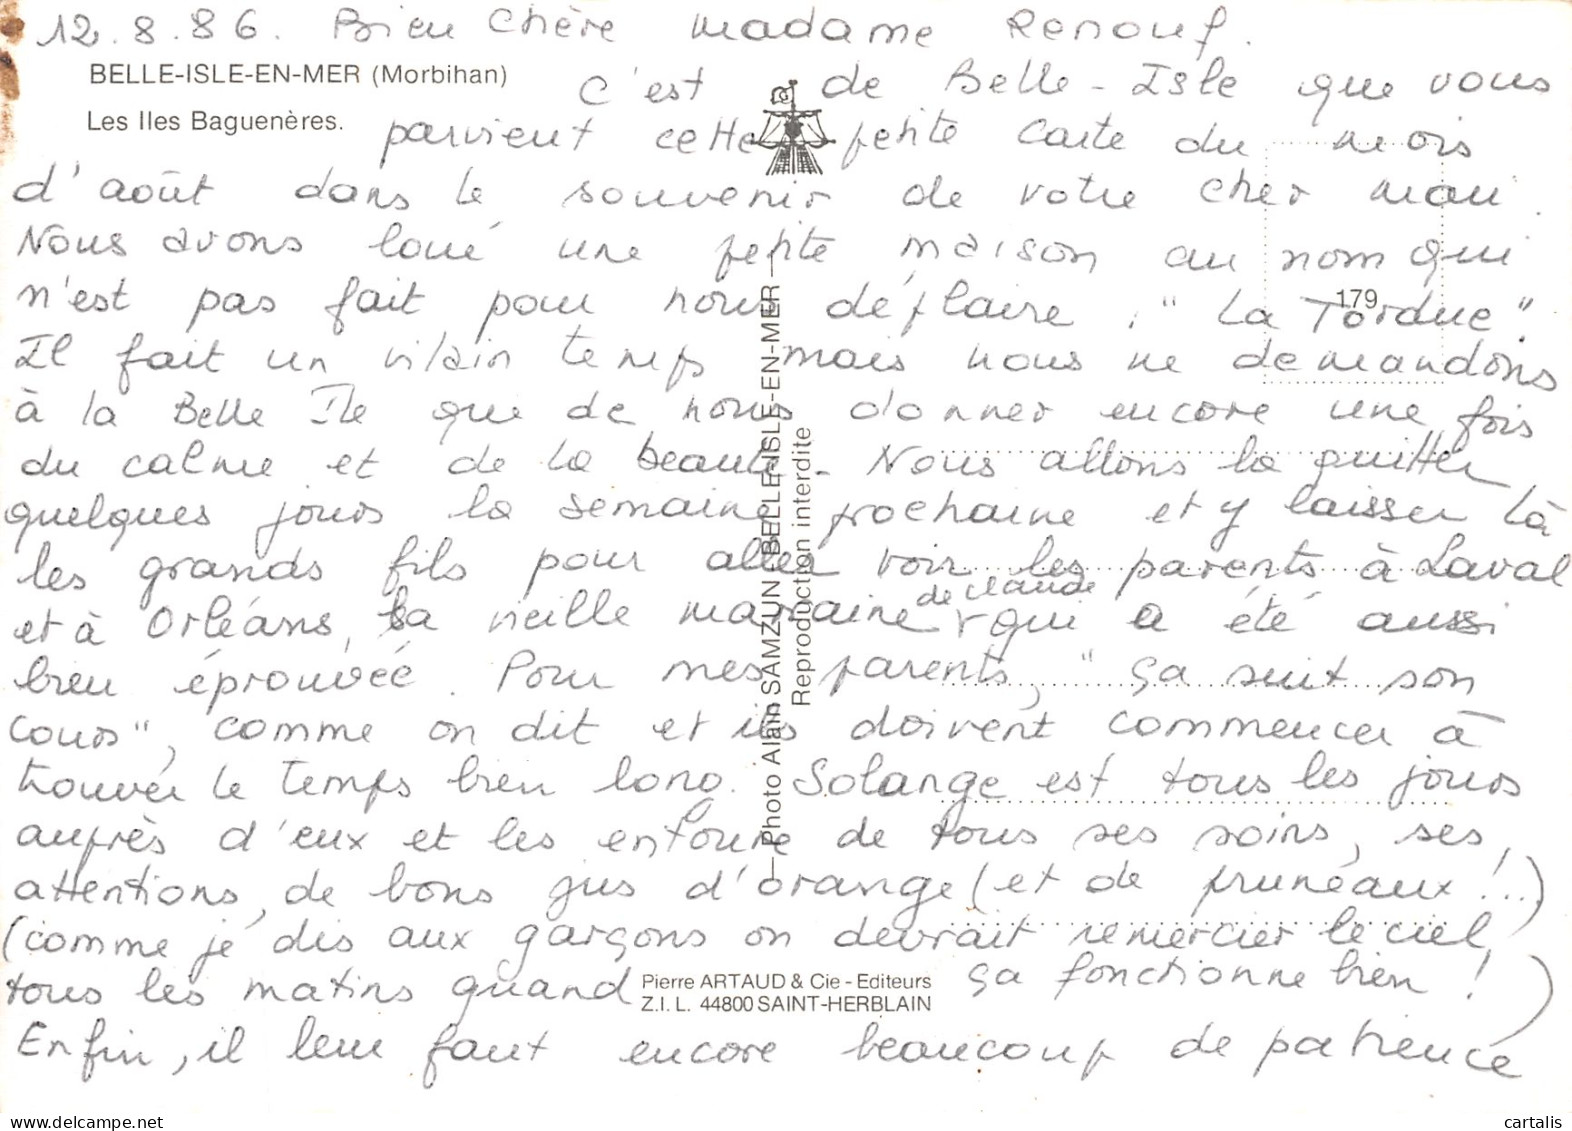 12.8.86. Bien Chère Madame Renouf.
BELLE-ISLE-EN-MER (Morbihan)
Les Iles Baguenères.
C'est de Belle-Isle que vous
parvient cette petite carte du mois
d'août dans le souvenir de votre cher mari.
Nous avons loué une petite maison au nom qui
n'est pas fait pour nous déplaire : "La Tordue".
179
Il fait un vilain temps mais nous ne demandons
à la Belle Ile que de nous donner encore une fois
du calme et de la beauté. Nous allons la quitter
quelques jours la semaine prochaine et y laisser là
les grands fils pour aller voir les parents à Laval
et à Orléans, la vieille marraine de Claude qui a été aussi
bien éprouvée. Pour mes parents, "ça suit son
cours", comme on dit et ils doivent commencer à
trouver le temps bien long. Solange est tous les jours
auprès d'eux et les entoure de tous ses soins, ses
attentions, de bons jus d'orange (et de pruneaux !..)
(comme je dis aux garçons on devrait remercier le ciel
tous les matins quand ça fonctionne bien ! )
Enfin, il leur faut encore beaucoup de patience
Pierre ARTAUD & Cie - Editeurs
Z.I.L. 44800 SAINT-HERBLAIN
— Photo Alain SAMZUN BELLE-ISLE-EN-MER —
Reproduction interdite
cartalis